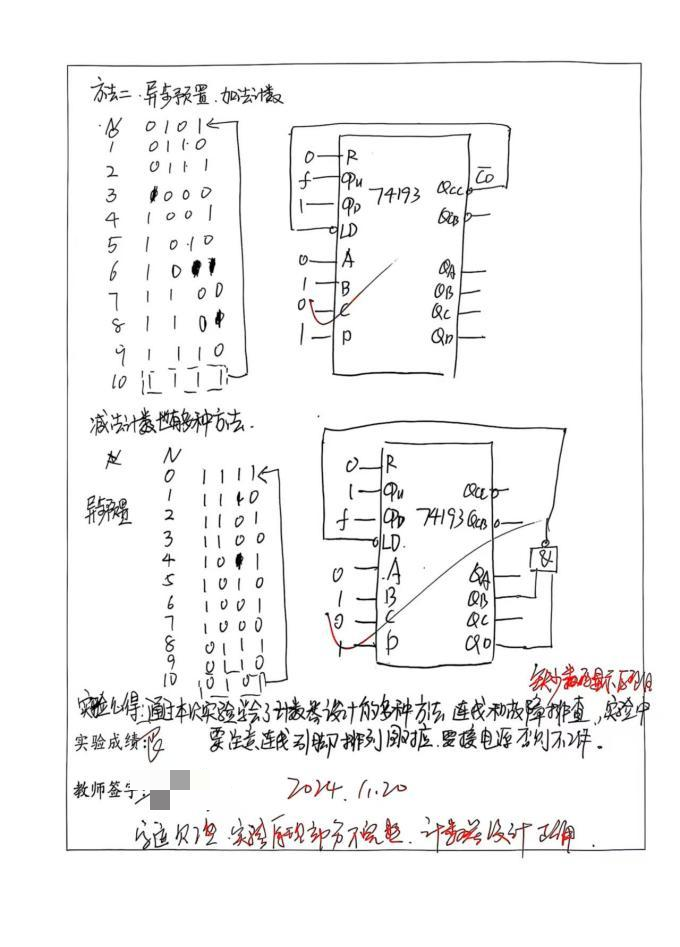 方法二.异步预置.加法计数
N 0 1 0 1
1 0 1 1 0
2 0 1 1 1
3 1 0 0 0
4 1 0 0 1
5 1 0 1 0
6 1 0
7 1 1 0 0
8 1 1 0
9 1 1 1 0
10 1 1 1 1
0 R
f CPu
1 CPD
LD
0 A
1 B
0 C
1 D
74193
QCC C̅O̅
QCB
QA
QB
QC
QD
减法计数也有多种方法.
N
异步预置
0 1 1 1 1
1 1 1 1 0
2 1 1 0 1
3 1 1 0 0
4 1 0 1
5 1 0 1 0
6 1 0 0 1
7 1 0 0 0
8 0 1 1 1
9 0 1 1 0
10 0 1 0
0 R
1 CPu
f CPD
LD.
0 A
1 B
0 C
1 D
74193
QCC
QCB
QA
QB
QC
QD
&
缺少数码显示
实验心得:通过本次实验学会了计数器设计的多种方法,连线和故障排查,实验中
实验成绩:良 要注意连线与引脚排列图对应,要接电源否则不工作。
教师签字:
2024.11.20
实验原理部分不完整.计数器设计正确.